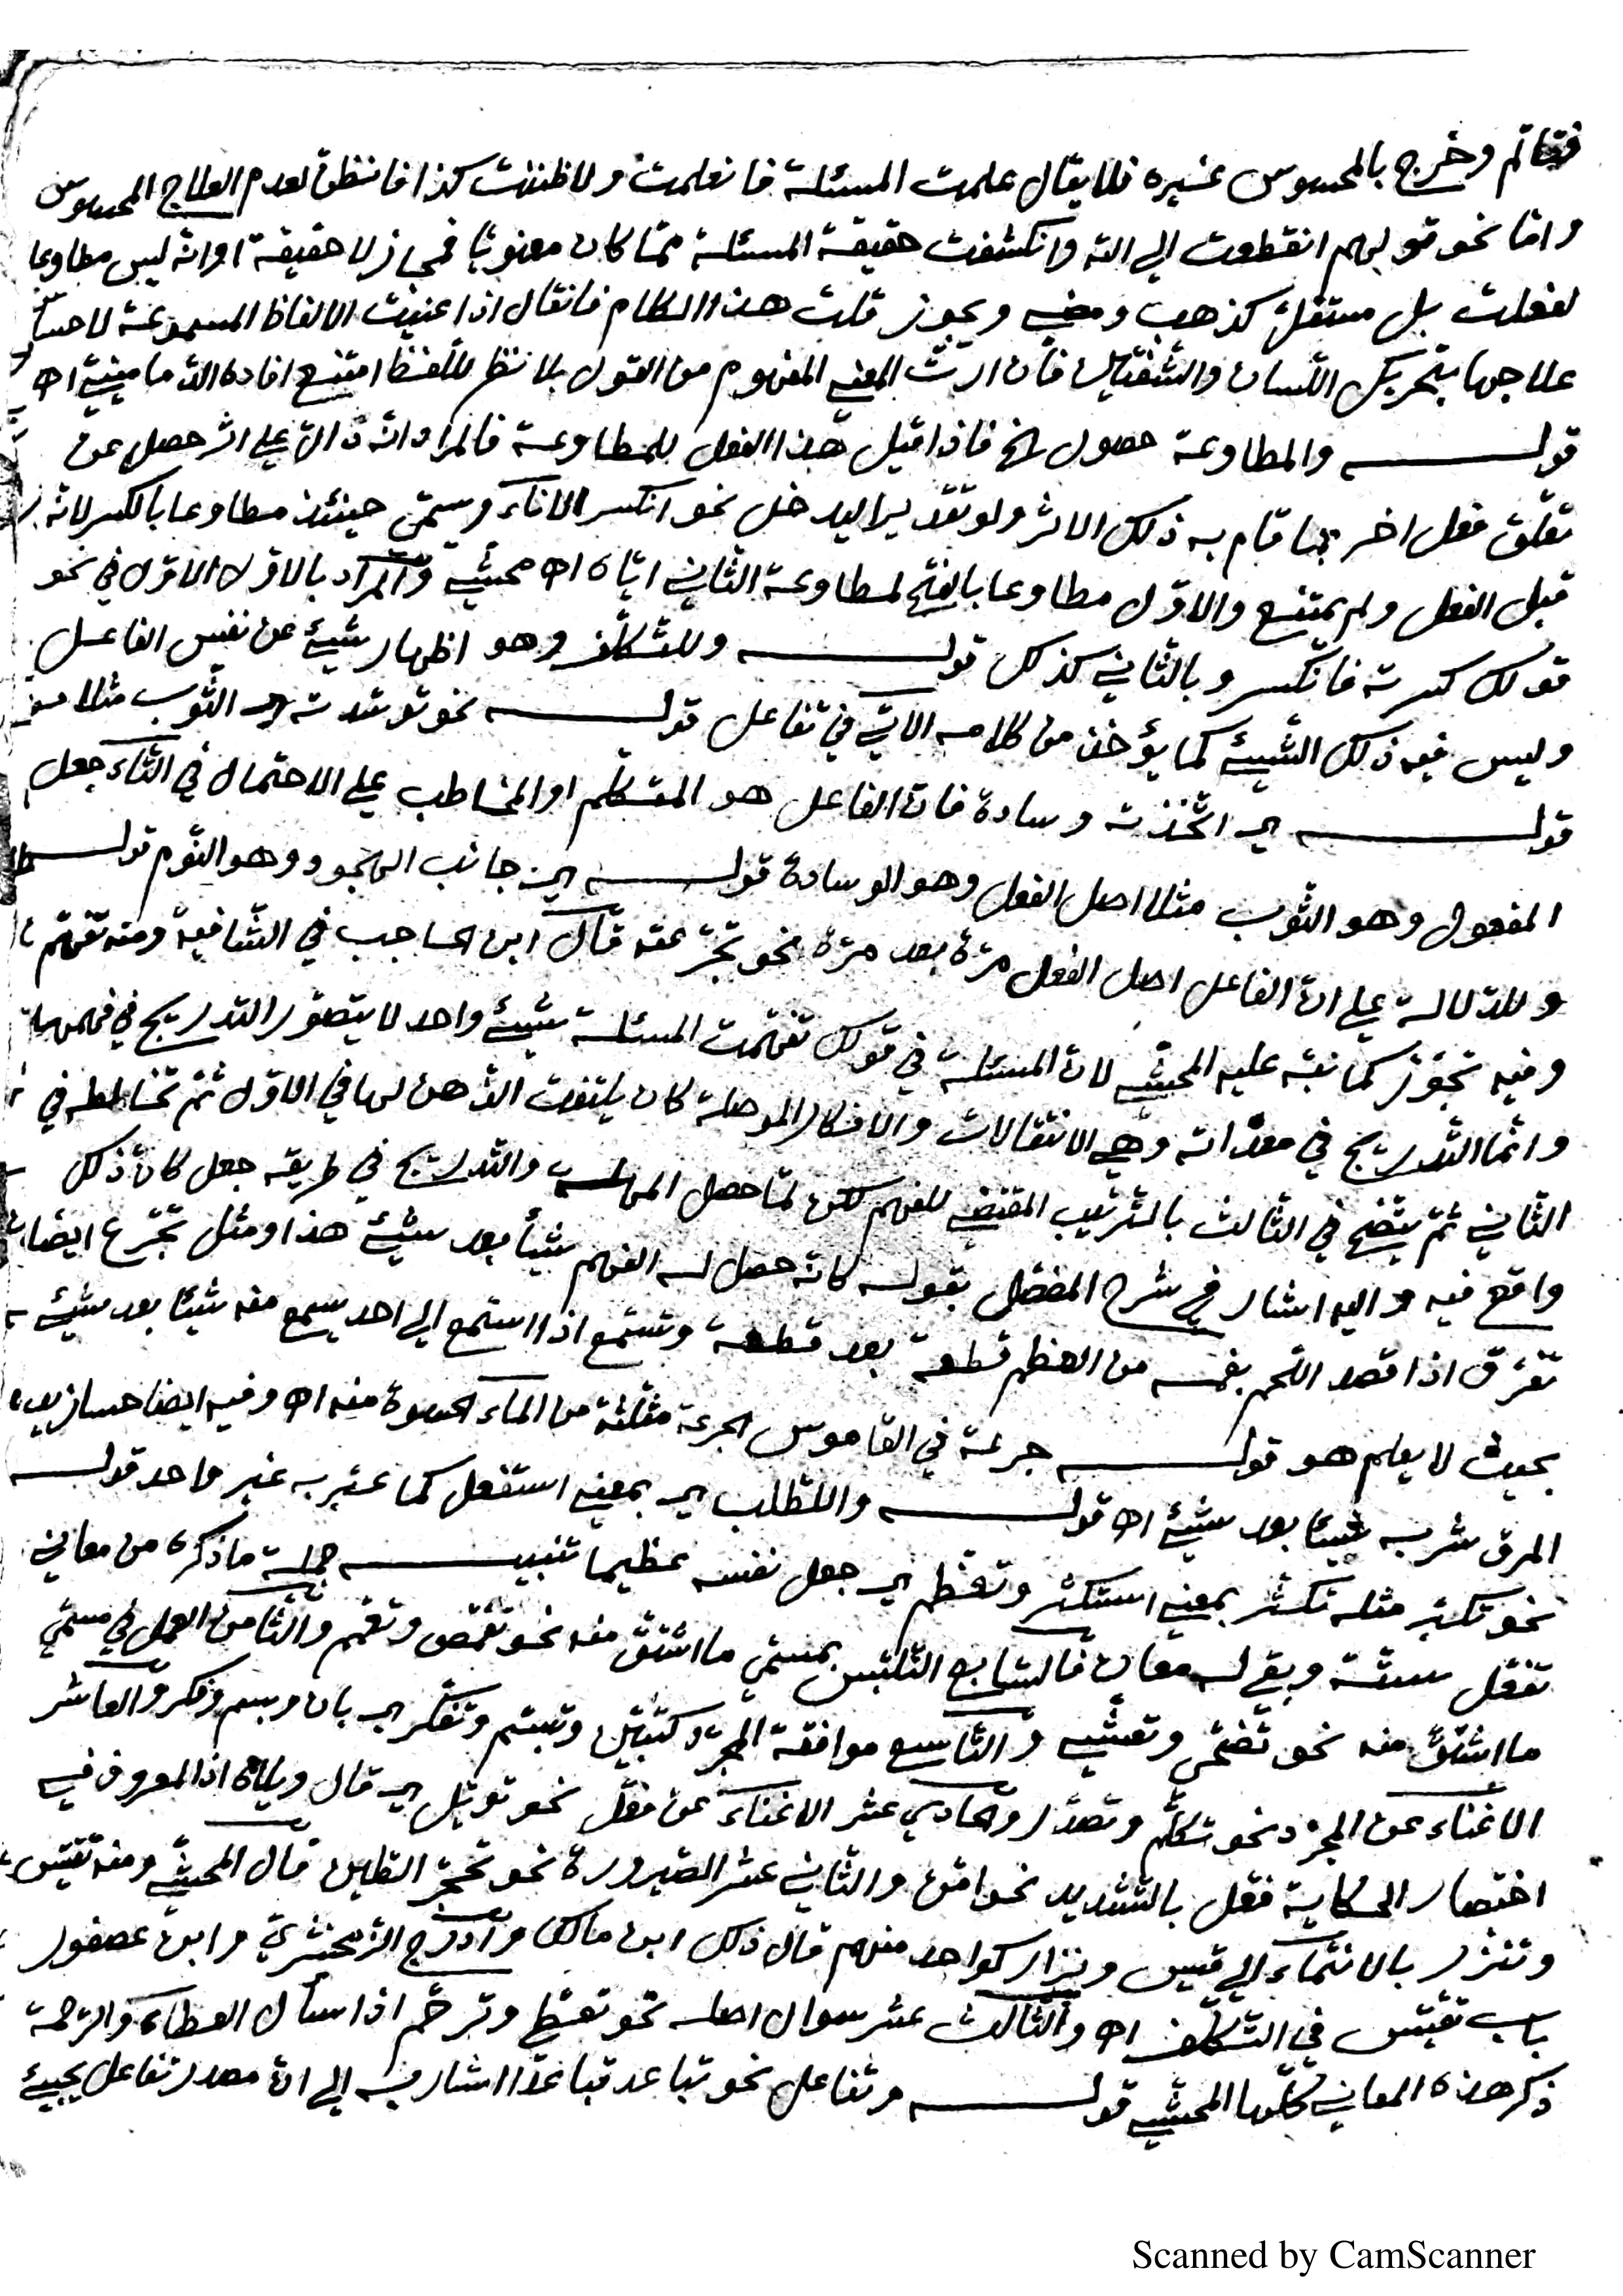 فقاتم وخرج بالمحسوس غيره فلا يقال علمت المسئلة فانعلمت ولا ظننت كذا فانظن لعدم العلاج المحسوس
واما نحو قولهم انقطعت الى الله وانكشفت حقيقة المسئلة مما كان معنويا فمجاز لا حقيقة او انه ليس مطاوعا
لفعلت بل مستقل كذهب ومضى ويجوز قلت هذا الكلام فانقال اذا عنيت الالفاظ المسموعة لاحساس
علاجها بتحريك اللسان والشفتين فان اردت المعنى المفهوم من القول بلا نظر للفظ امتنع افاده الدماميني اه
قوله والمطاوعة حصول الخ فاذا قيل هذا الفعل للمطاوعة فالمراد انه دال على اثر حصل عن
تعلق فعل اخر بما قام به ذلك الاثر ولو تقديرا ليدخل نحو انكسر الاناء وسمى حينئذ مطاوعا بالكسر لانه
قبل الفعل ولم يمتنع والاول مطاوعا بالفتح لمطاوعة الثاني اياه اه محشي والمراد بالاول الاول في نحو
قولك كسرته فانكسر وبالثاني كذلك قوله وللتكلف وهو اظهار شيئ عن نفس الفاعل
وليس فيه ذلك الشيئ كما يؤخذ من كلامه الآتي في تفاعل قوله نحو توسدته اي الثوب مثلا
قوله اي اتخذته وسادة فان الفاعل هو المتكلم او المخاطب على الاحتمال في التاء جعل
المفعول وهو الثوب مثلا اصل الفعل وهو الوسادة قوله اي جانب الهجود وهو النوم قوله
وللدلالة على ان الفاعل اصل الفعل مرة بعد مرة نحو تجرعته قال ابن الحاجب في الشافية ومنه تفهم
وفيه تجوز كما نبه عليه المحشي لان المسئلة في قولك تفهمت المسئلة شيئ واحد لا يتصور التدريج في فهمها
وانما التدريج في معداته وهي الانتقالات والافكار الموصلة كان يلتفت الذهن لها في الاول ثم تخالطه في
الثاني ثم يتضح في الثالث بالترتيب المقتضى للفهم لكن لما حصل المهلة والتدريج في طريقه جعل كان ذلك
واقع فيه واليه اشار في شرح المفصل بقوله كانه حصل له الفهم شيأ بعد شيئ هذا ومثل تجرع ايضا
تعرق اذا قصد اللحم بفمه من العظم قطعة بعد قطعة وتسمع اذا استمع الى احد يسمع منه شيئا بعد شيئ
بحيث لا يعلم هو قوله جرعة في القاموس الجرعة مثلثة من الماء الحسوة منه اه وفيه ايضا حسا زيد
المرق شربه شيئا بعد شيئ اه قوله والطلب اي بمعنى استفعل كما عبر به غير واحد قوله
نحو تكبر مثله تكثر بمعنى استكثر وتعظم اي جعل نفسه عظيما تنبيه جملة ما ذكره من معاني
تفعل ستة وبقي له معان فالسابع التلبس بمسمى ما اشتق منه نحو تقمص وتعمم والثامن العمل في مسمى
ما اشتق منه نحو تضحى وتعشى والتاسع موافقة المجرد كتبين وتبسم وتفكر اي بان وبسم وفكر والعاشر
الاغناء عن المجرد نحو تكلم وتصدر والحادي عشر الاغناء عن فعل نحو توبل اي قال ويلاه اذ المعروف فيه
اختصار الحكاية فعل بالتشديد نحو امن والثاني عشر الصيرورة نحو تحجر الطين قال المحشي ومنه تقيس
وتنزر بالانتماء الى قيس ونزار كواحد منهم قال ذلك ابن مالك وادرج الزمخشري وابن عصفور
باب تقيس في التكلف اه والثالث عشر سؤال اصله نحو تعط وترحم اذا سأل العطاء والرحمة
ذكر هذه المعاني كلها المحشي قوله وتفاعل نحو تباعد تباعدا اشار به الى ان مصدر تفاعل يجيئ
Scanned by CamScanner